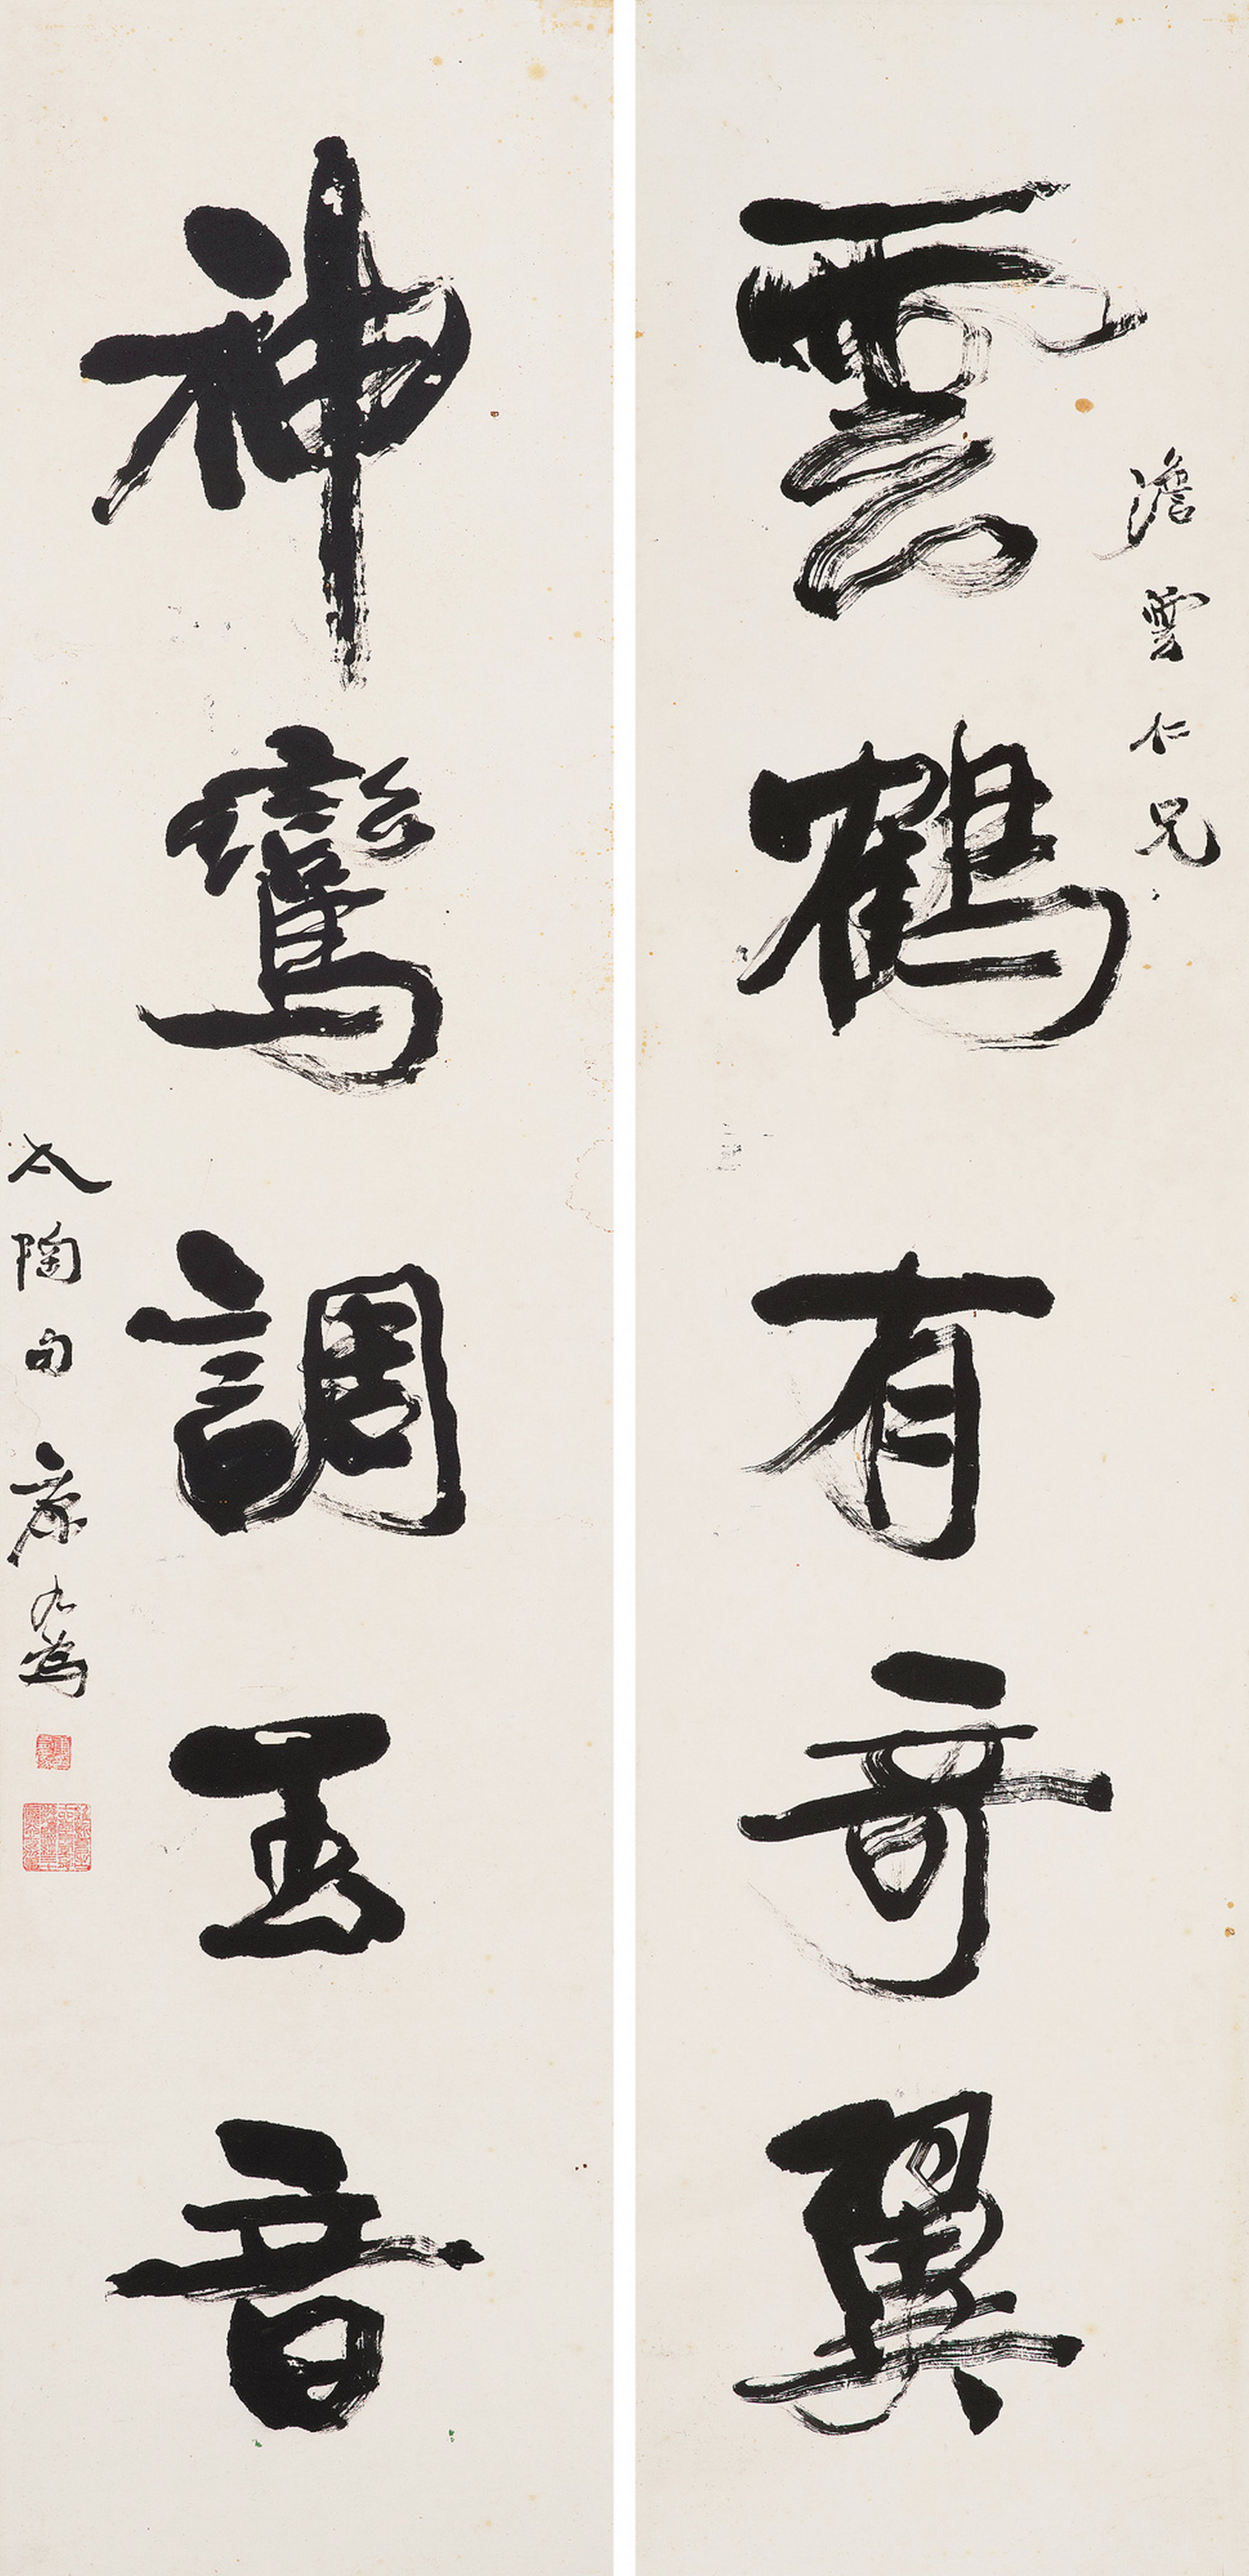 澹雲仁兄
雲鶴有奇翼
神鸞調玉音
大陶句 康有為